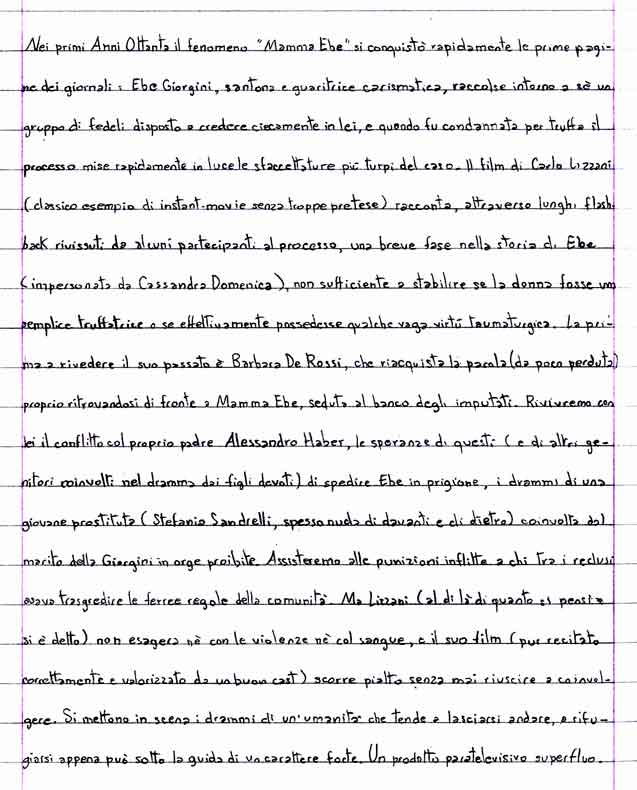 Nei primi Anni Ottanta il fenomeno "Mamma Ebe" si conquistò rapidamente le prime pagi-
ne dei giornali: Ebe Giorgini, santona e guaritrice carismatica, raccolse intorno a sè un
gruppo di fedeli disposto a credere ciecamente in lei, e quando fu condannata per truffa il
processo mise rapidamente in luce le sfaccettature più turpi del caso. Il film di Carlo Lizzani
(classico esempio di instant-movie senza troppe pretese) racconta, attraverso lunghi flash
back rivissuti da alcuni partecipanti al processo, una breve fase nella storia di Ebe
(impersonata da Cassandra Domenica), non sufficiente a stabilire se la donna fosse una
semplice truffatrice o se effettivamente possedesse qualche vaga virtù taumaturgica. La pri-
ma a rivedere il suo passato è Barbara De Rossi, che riacquista la parola (da poco perduta)
proprio ritrovandosi di fronte a Mamma Ebe, seduta al banco degli imputati. Rivivremo con
lei il conflitto col proprio padre Alessandro Haber, le speranze di questi (e di altri ge-
nitori coinvolti nel dramma dai figli devoti) di spedire Ebe in prigione, i drammi di una
giovane prostituta (Stefania Sandrelli, spesso nuda di davanti e di dietro) coinvolta dal
marito della Giorgini in orge proibite. Assisteremo alle punizioni inflitte a chi tra i reclusi
osava trasgredire le ferree regole della comunità. Ma Lizzani (al di là di quanto si pensi e
si è detto) non esagera nè con le violenze nè col sangue, e il suo film (pur recitato
correttamente e valorizzato da un buon cast) scorre piatto senza mai riuscire a coinvol-
gere. Si mettono in scena i drammi di un'umanità che tende a lasciarsi andare, a rifu-
giarsi appena può sotto la guida di un carattere forte. Un prodotto paratelevisivo superfluo.